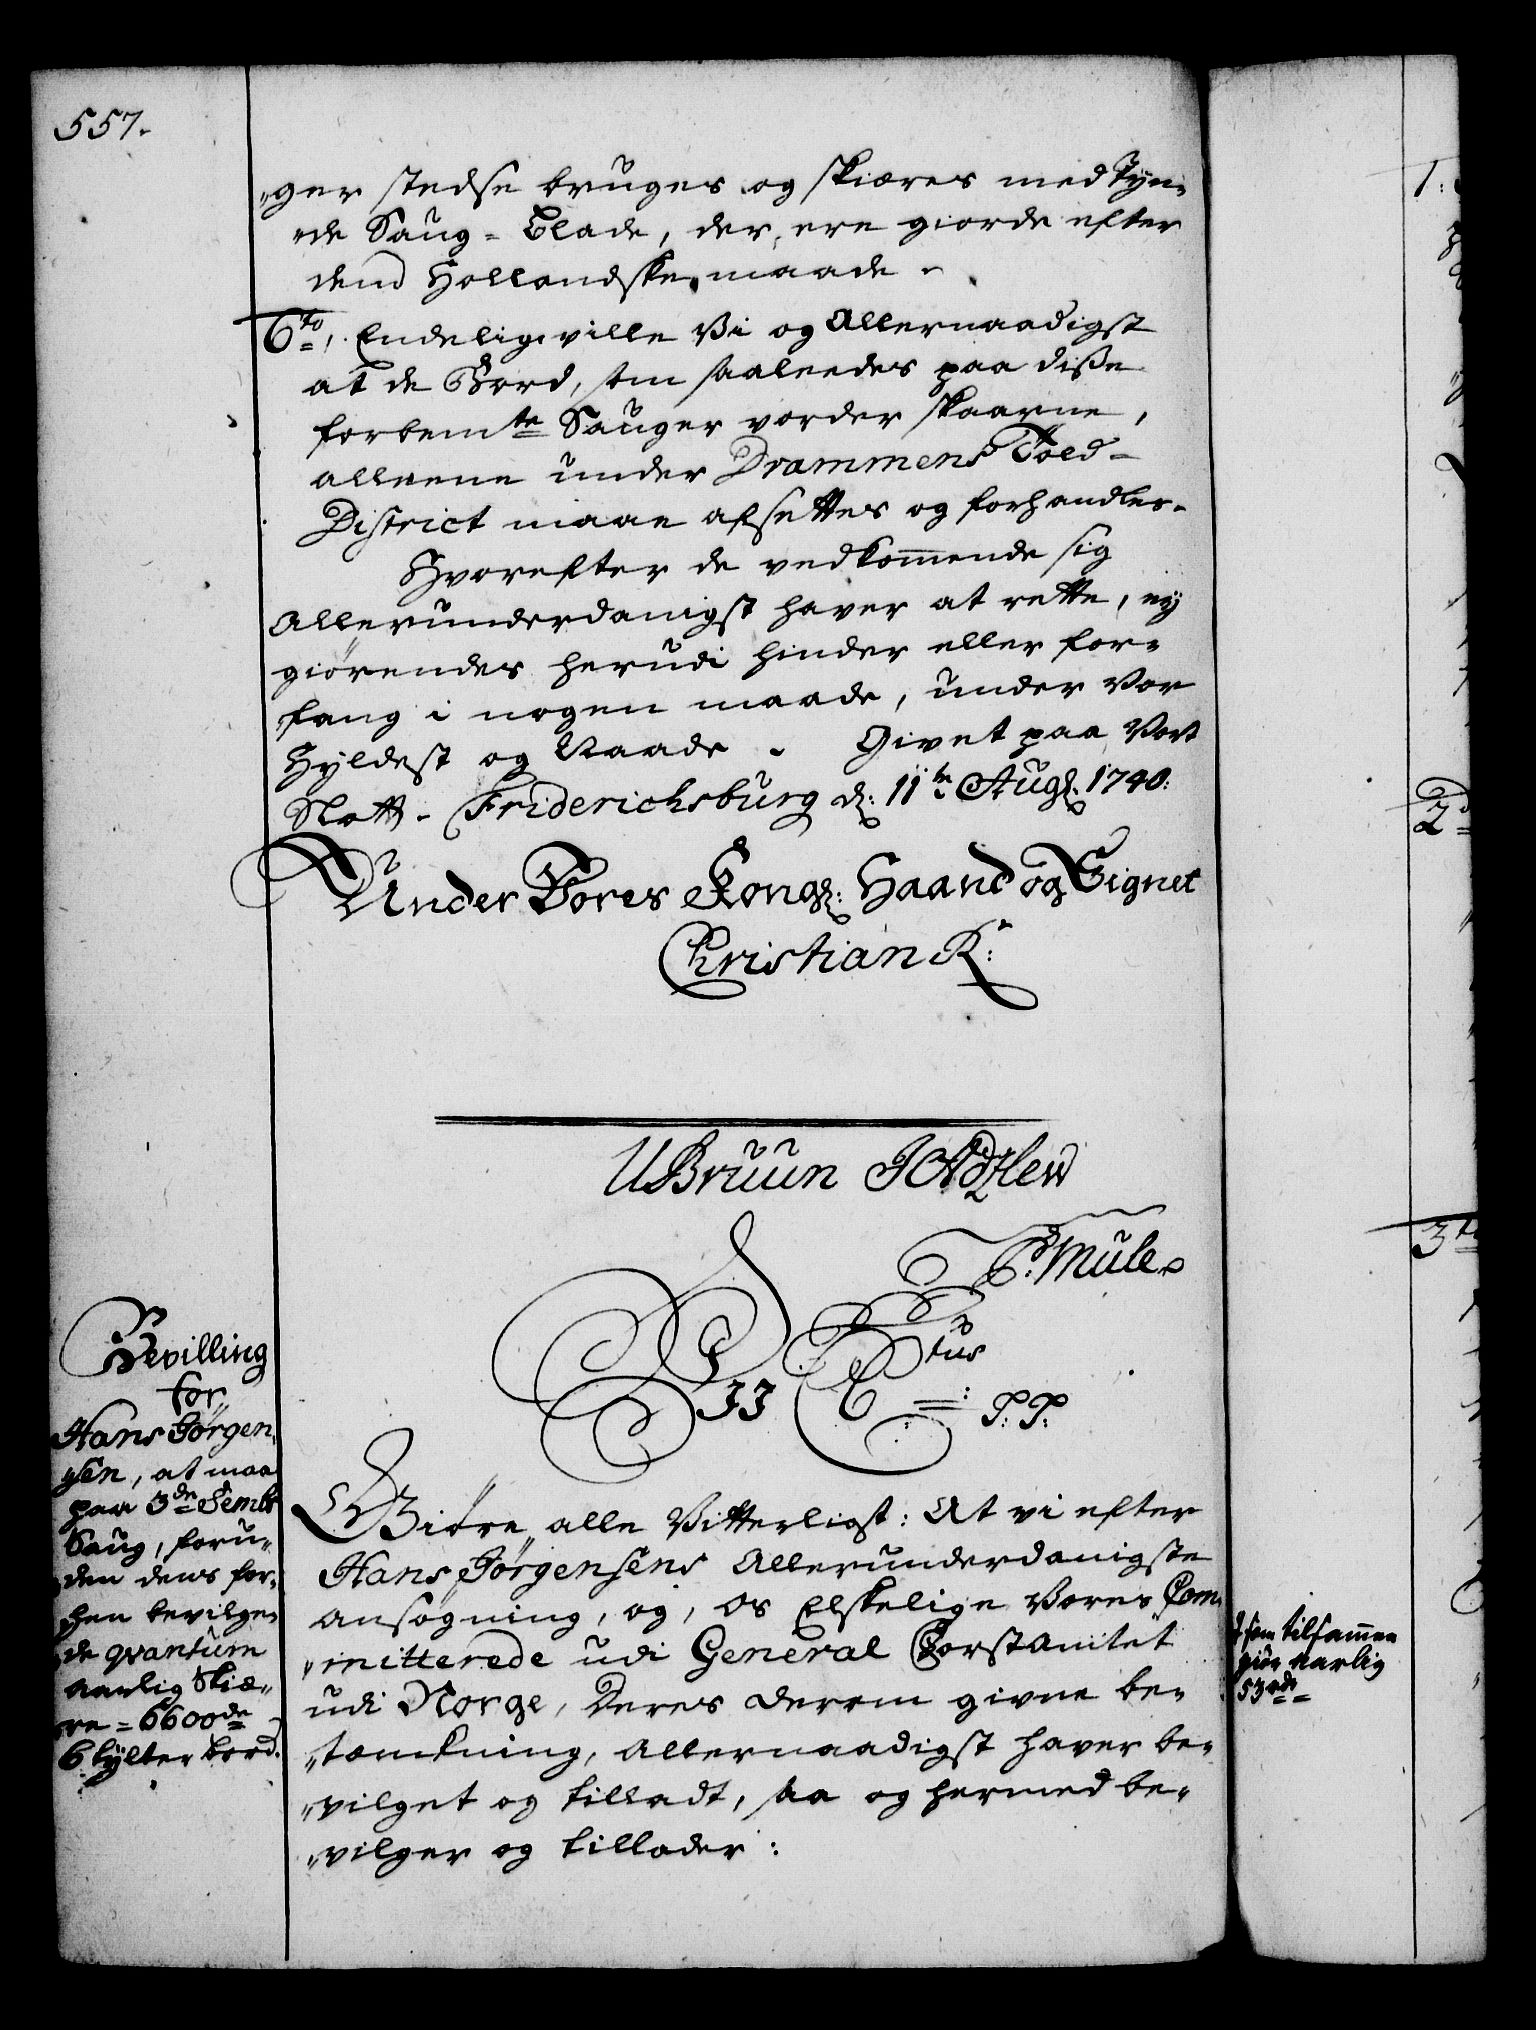 557.
"ger stedse bruges og skiæres med Tyn„
"de Saug = Blade, der, ere giorde efter
dend Hollandske maade.
6to, Endelig ville Vi og Allernaadigst
at de Bord, som saaleedes paa diße
forbemte Sauger vorder skaarne,
alleene under Drammens Told-
District maae afsettes og forhandles.
Hvorefter de vedkom̅ende sig
Allerunderdanigst haver at rette, ey
giörendes herudi hinder eller for„
fang i nogen maade, under Vor
Hyldest og Naade. Givet paa Vort
Slott. Friderichsburg d: 11te Aug: 1740.
Under Vores Kongl: Haand og Signet
Christian R:
UBruun
P: Mule
VI CS
tus
T: T:
Bevilling
for
Hans Jörgen„
"sen, at maa
paa 3de Sembs
Saug, foru„
den dens for„
hen bevilge„
de qvantum
aarlig Skiæ„
re = 6600de
6 tylter bord.
Giöre alle Vitterligst: At vi efter
Hans Jörgensens Allerunderdanigste
ansögning, og, os Elskelige Vores Com„
"mitterede udi General Forstamtet
udi Norge, Deres derom givne be„
"tænkning, Allernaadigst haver be„
"vilget og tilladt, saa og hermed be„
"vilger og tillader:
som tilsam̅en
giör aarlig
1:
2d
3ti